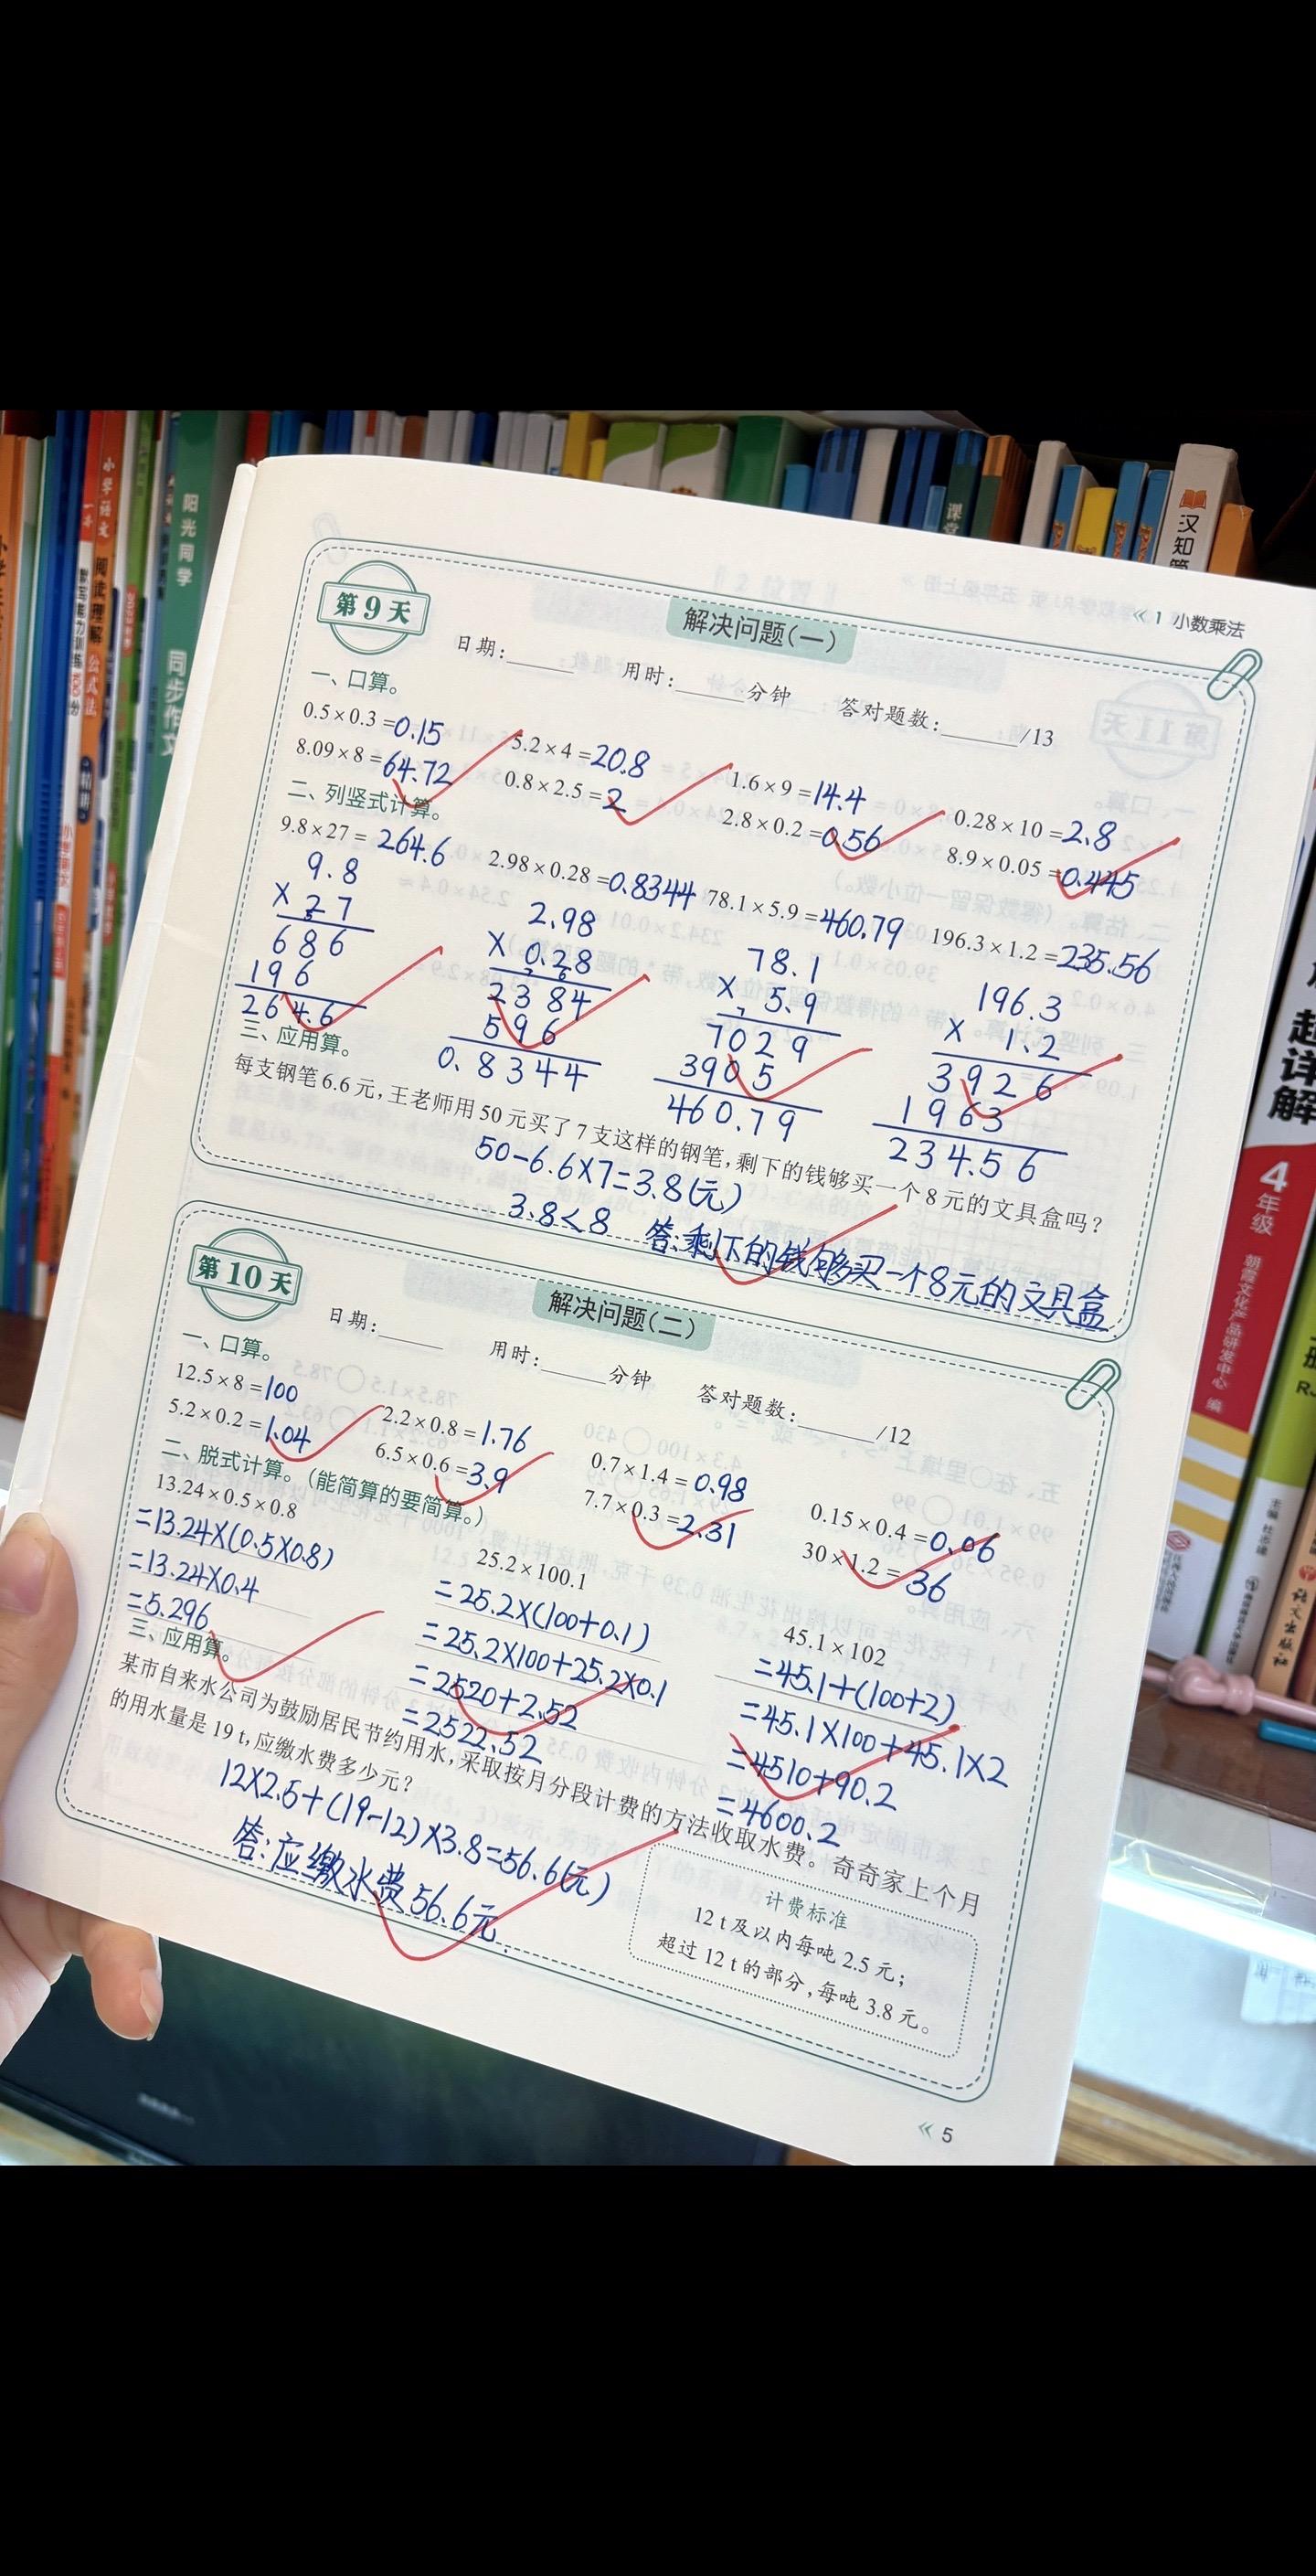 « 1 小数乘法
第9天
解决问题(一)
日期:______ 用时:______分钟 答对题数:______/13
一、口算。
0.5×0.3=0.15 5.2×4=20.8 1.6×9=14.4 0.28×10=2.8
8.09×8=64.72 0.8×2.5=2 2.8×0.2=0.56 8.9×0.05=0.445
二、列竖式计算。
9.8×27=264.6 2.98×0.28=0.8344 78.1×5.9=460.79 196.3×1.2=235.56
9.8 2.98 78.1 196.3
×27 ×0.28 ×5.9 ×1.2
686 2384 7029 3926
196 596 3905 1963
264.6 0.8344 460.79 234.56
三、应用算。
每支钢笔6.6元,王老师用50元买了7支这样的钢笔,剩下的钱够买一个8元的文具盒吗?
50-6.6×7=3.8(元)
3.8<8 答:剩下的钱够买一个8元的文具盒
第10天
解决问题(二)
日期:______ 用时:______分钟 答对题数:______/12
一、口算。
12.5×8=100 2.2×0.8=1.76 0.7×1.4=0.98 0.15×0.4=0.06
5.2×0.2=1.04 6.5×0.6=3.9 7.7×0.3=2.31 30×1.2=36
二、脱式计算。(能简算的要简算。)
13.24×0.5×0.8
=13.24×(0.5×0.8)
=13.24×0.4
=5.296
25.2×100.1
=25.2×(100+0.1)
=25.2×100+25.2×0.1
=2520+2.52
=2522.52
45.1×102
=45.1+(100+2)
=45.1×100+45.1×2
=4510+90.2
=4600.2
三、应用算。
某市自来水公司为鼓励居民节约用水,采取按月分段计费的方法收取水费。奇奇家上个月
的用水量是19 t,应缴水费多少元?
12×2.5+(19-12)×3.8=56.6(元)
答:应缴水费56.6元.
计费标准
12 t及以内每吨2.5元;
超过12 t的部分,每吨3.8元。
« 5
阳光同学
同步作文
小学语文
阅读理解
公式法
课堂
汉知简
超详解
4年级
朝霞文化产品研发中心 编
语文出版社